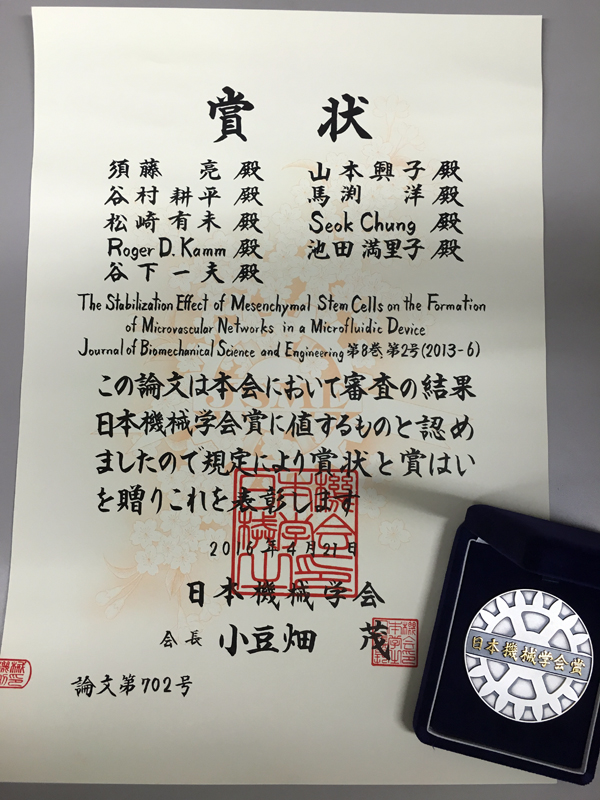 賞状
須藤 亮 殿 山本興子殿
谷村耕平殿 馬渕 洋 殿
松崎有未殿 Seok Chung 殿
Roger D. Kamm 殿 池田満里子殿
谷下一夫殿
The Stabilization Effect of Mesenchymal Stem Cells on the Formation
of Microvascular Networks in a Microfluidic Device
Journal of Biomechanical Science and Engineering 第8巻、第2号(2013-6)
この論文は本会において審査の結果
日本機械学会賞に値するものと認め
ましたので規定により賞状と賞はい
を贈りこれを表彰します
2016年4月21日
日本機械学会
会長 小豆畑 茂
論文第702号
日本機械学会賞